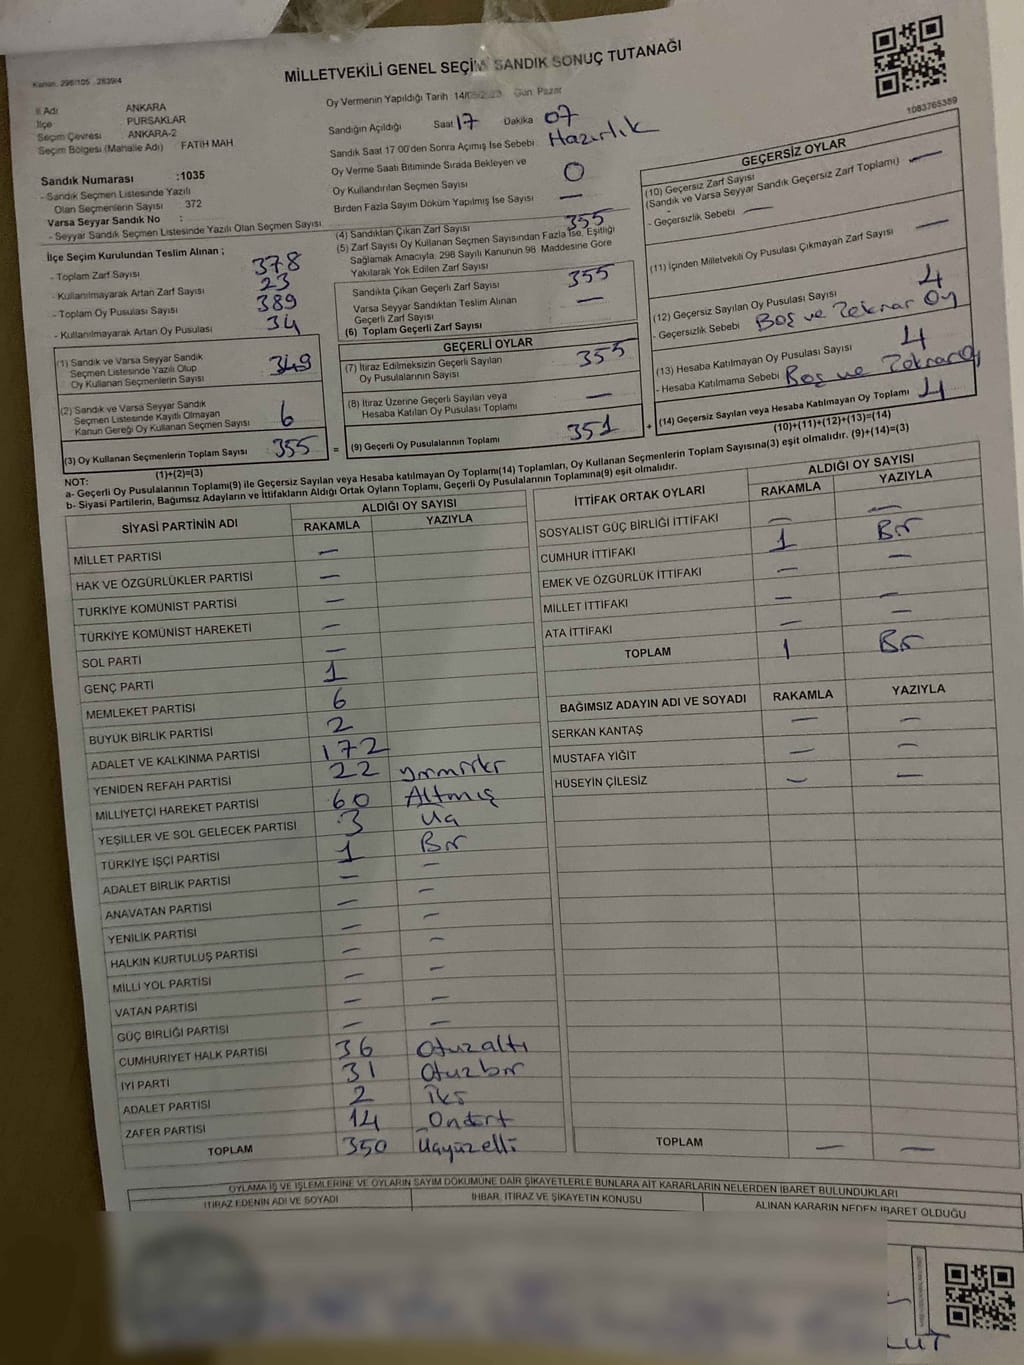 Kanun. 298/105 . 2839/4
MİLLETVEKİLİ GENEL SEÇİMİ SANDIK SONUÇ TUTANAĞI
1083765389
İl Adı ANKARA
İlçe PURSAKLAR
Seçim Çevresi ANKARA-2
Seçim Bölgesi (Mahalle Adı) FATİH MAH.
Sandık Numarası :1035
- Sandık Seçmen Listesinde Yazılı
Olan Seçmenlerin Sayısı 372
Varsa Seyyar Sandık No :
- Seyyar Sandık Seçmen Listesinde Yazılı Olan Seçmen Sayısı
Oy Vermenin Yapıldığı Tarih 14/05/2023 Gün: Pazar
Sandığın Açıldığı Saat 17 Dakika 07
Sandık Saat 17.00'den Sonra Açımış İse Sebebi Hazırlık
Oy Verme Saati Bitiminde Sırada Bekleyen ve
Oy Kullandırılan Seçmen Sayısı 0
Birden Fazla Sayım Döküm Yapılmış İse Sayısı —
İlçe Seçim Kurulundan Teslim Alınan ;
- Toplam Zarf Sayısı 378
- Kullanılmayarak Artan Zarf Sayısı 23
- Toplam Oy Pusulası Sayısı 389
- Kullanılmayarak Artan Oy Pusulası 34
(1) Sandık ve Varsa Seyyar Sandık
Seçmen Listesinde Yazılı Olup
Oy Kullanan Seçmenlerin Sayısı 349
(2) Sandık ve Varsa Seyyar Sandık
Seçmen Listesinde Kayıtlı Olmayan
Kanun Gereği Oy Kullanan Seçmen Sayısı 6
(3) Oy Kullanan Seçmenlerin Toplam Sayısı 355
(1)+(2)=(3)
(4) Sandıktan Çıkan Zarf Sayısı 355
(5) Zarf Sayısı Oy Kullanan Seçmen Sayısından Fazla İse, Eşitliği
Sağlamak Amacıyla, 298 Sayılı Kanunun 98. Maddesine Göre
Yakılarak Yok Edilen Zarf Sayısı
Sandıkta Çıkan Geçerli Zarf Sayısı 355
Varsa Seyyar Sandıktan Teslim Alınan
Geçerli Zarf Sayısı —
(6) Toplam Geçerli Zarf Sayısı
GEÇERLİ OYLAR
(7) İtiraz Edilmeksizin Geçerli Sayılan
Oy Pusulalarının Sayısı 355
(8) İtiraz Üzerine Geçerli Sayılan veya
Hesaba Katılan Oy Pusulası Toplamı —
= (9) Geçerli Oy Pusulalarının Toplamı 351 +
GEÇERSİZ OYLAR
(10) Geçersiz Zarf Sayısı
(Sandık ve Varsa Seyyar Sandık Geçersiz Zarf Toplamı) —
- Geçersizlik Sebebi —
(11) İçinden Milletvekili Oy Pusulası Çıkmayan Zarf Sayısı —
(12) Geçersiz Sayılan Oy Pusulası Sayısı 4
- Geçersizlik Sebebi Boş ve Teknar Oy
(13) Hesaba Katılmayan Oy Pusulası Sayısı 4
- Hesaba Katılmama Sebebi Boş ve Teknar Oy
(14) Geçersiz Sayılan veya Hesaba Katılmayan Oy Toplamı 4
(10)+(11)+(12)+(13)=(14)
NOT:
a- Geçerli Oy Pusulalarının Toplamı(9) ile Geçersiz Sayılan veya Hesaba katılmayan Oy Toplamı(14) Toplamları, Oy Kullanan Seçmenlerin Toplam Sayısına(3) eşit olmalıdır. (9)+(14)=(3)
b- Siyasi Partilerin, Bağımsız Adayların ve İttifakların Aldığı Ortak Oyların Toplamı, Geçerli Oy Pusulalarının Toplamına(9) eşit olmalıdır.
SİYASİ PARTİNİN ADI ALDIĞI OY SAYISI
RAKAMLA YAZIYLA
MİLLET PARTİSİ —
HAK VE ÖZGÜRLÜKLER PARTİSİ —
TÜRKİYE KOMÜNİST PARTİSİ —
TÜRKİYE KOMÜNİST HAREKETİ —
SOL PARTİ —
GENÇ PARTİ 1
MEMLEKET PARTİSİ 6
BÜYÜK BİRLİK PARTİSİ 2
ADALET VE KALKINMA PARTİSİ 172
YENİDEN REFAH PARTİSİ 22 yirmiiki
MİLLİYETÇİ HAREKET PARTİSİ 60 Altmış
YEŞİLLER VE SOL GELECEK PARTİSİ 3 Üç
TÜRKİYE İŞÇİ PARTİSİ 1 Bir
ADALET BİRLİK PARTİSİ — —
ANAVATAN PARTİSİ — —
YENİLİK PARTİSİ — —
HALKIN KURTULUŞ PARTİSİ — —
MİLLİ YOL PARTİSİ — —
VATAN PARTİSİ — —
GÜÇ BİRLİĞİ PARTİSİ — —
CUMHURİYET HALK PARTİSİ 36 Otuzaltı
İYİ PARTİ 31 Otuzbir
ADALET PARTİSİ 2 İki
ZAFER PARTİSİ 14 Ondört
TOPLAM 350 Üçyüzelli
İTTİFAK ORTAK OYLARI ALDIĞI OY SAYISI
RAKAMLA YAZIYLA
SOSYALİST GÜÇ BİRLİĞİ İTTİFAKI — —
CUMHUR İTTİFAKI 1 Bir
EMEK VE ÖZGÜRLÜK İTTİFAKI — —
MİLLET İTTİFAKI — —
ATA İTTİFAKI — —
TOPLAM 1 Bir
BAĞIMSIZ ADAYIN ADI VE SOYADI RAKAMLA YAZIYLA
SERKAN KANTAŞ — —
MUSTAFA YİĞİT — —
HÜSEYİN ÇİLESİZ — —
TOPLAM — —
OYLAMA İŞ VE İŞLEMLERİNE VE OYLARIN SAYIM DÖKÜMÜNE DAİR ŞİKAYETLERLE BUNLARA AİT KARARLARIN NELERDEN İBARET BULUNDUKLARI
İTİRAZ EDENİN ADI VE SOYADI İHBAR, İTİRAZ VE ŞİKAYETİN KONUSU ALINAN KARARIN NEDEN İBARET OLDUĞU